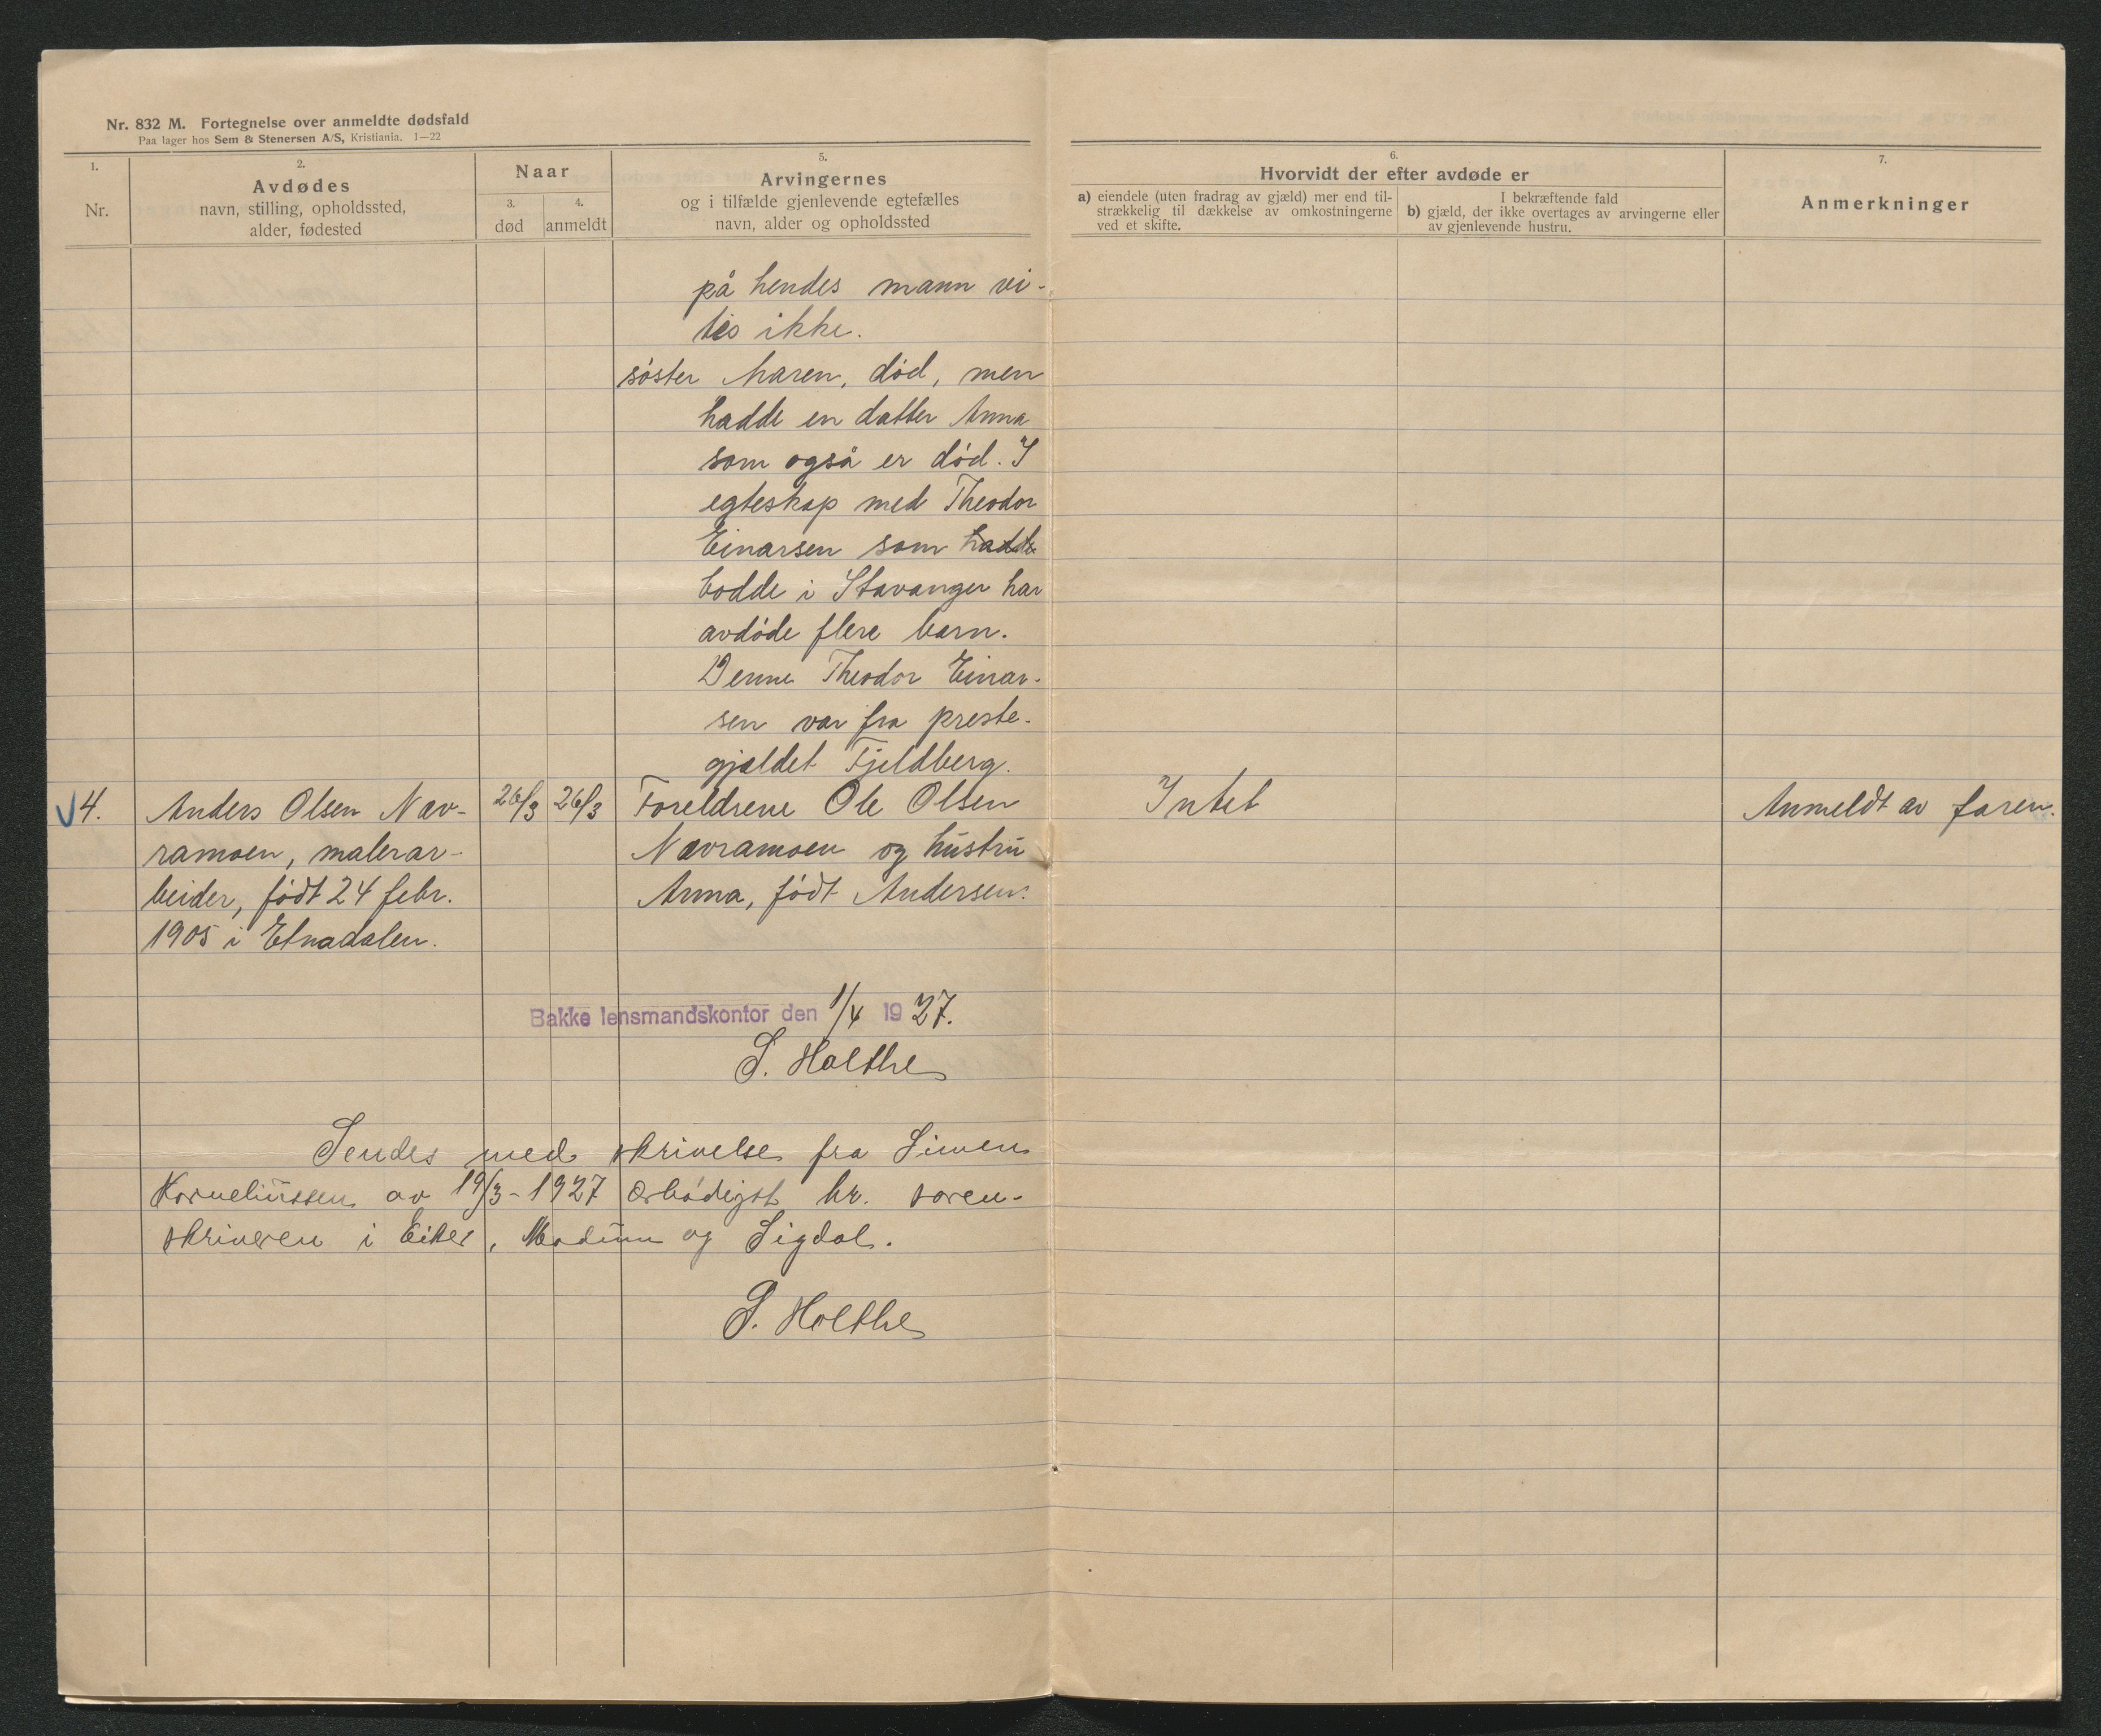 Nr. 832 M. Fortegnelse over anmeldte dødsfald
Paa lager hos Sem & Stenersen A/S, Kristiania. 1—22
1.
Nr.
2.
Avdødes
navn, stilling, opholdssted,
alder, fødested
Naar
3.
død
4.
anmeldt
5.
Arvingernes
og i tilfælde gjenlevende egtefælles
navn, alder og opholdssted
6.
Hvorvidt der efter avdøde er
a) eiendele (uten fradrag av gjæld) mer end til-
strækkelig til dækkelse av omkostningerne
ved et skifte.
I bekræftende fald
b) gjæld, der ikke overtages av arvingerne eller
av gjenlevende hustru.
7.
Anmerkninger
på hendes mann vi-
tes ikke.
søster Maren, død, men
hadde en datter Anna
som også er død. I
egteskap med Theodor
Einarsen som hadde
bodde i Stavanger har
avdøde flere barn.
Denne Theodor Einar-
sen var fra preste-
gjældet Fjeldberg.
4. Anders Olsen Nav- 26/3 26/3 Foreldrene Ole Olsen Intet Anmeldt av faren.
ramoen, malerar- Navramoen og hustru
beider, født 24 febr. Anna, født Andersen.
1905 i Etnadalen.
Bakke lensmandskontor den 1/4 1927.
S. Holthe
Sendes med skrivelse fra Simen
Korneliussen av 19/3-1927 ærbødigst hr. soren-
skriveren i Eiker, Modum og Sigdal.
S. Holthe